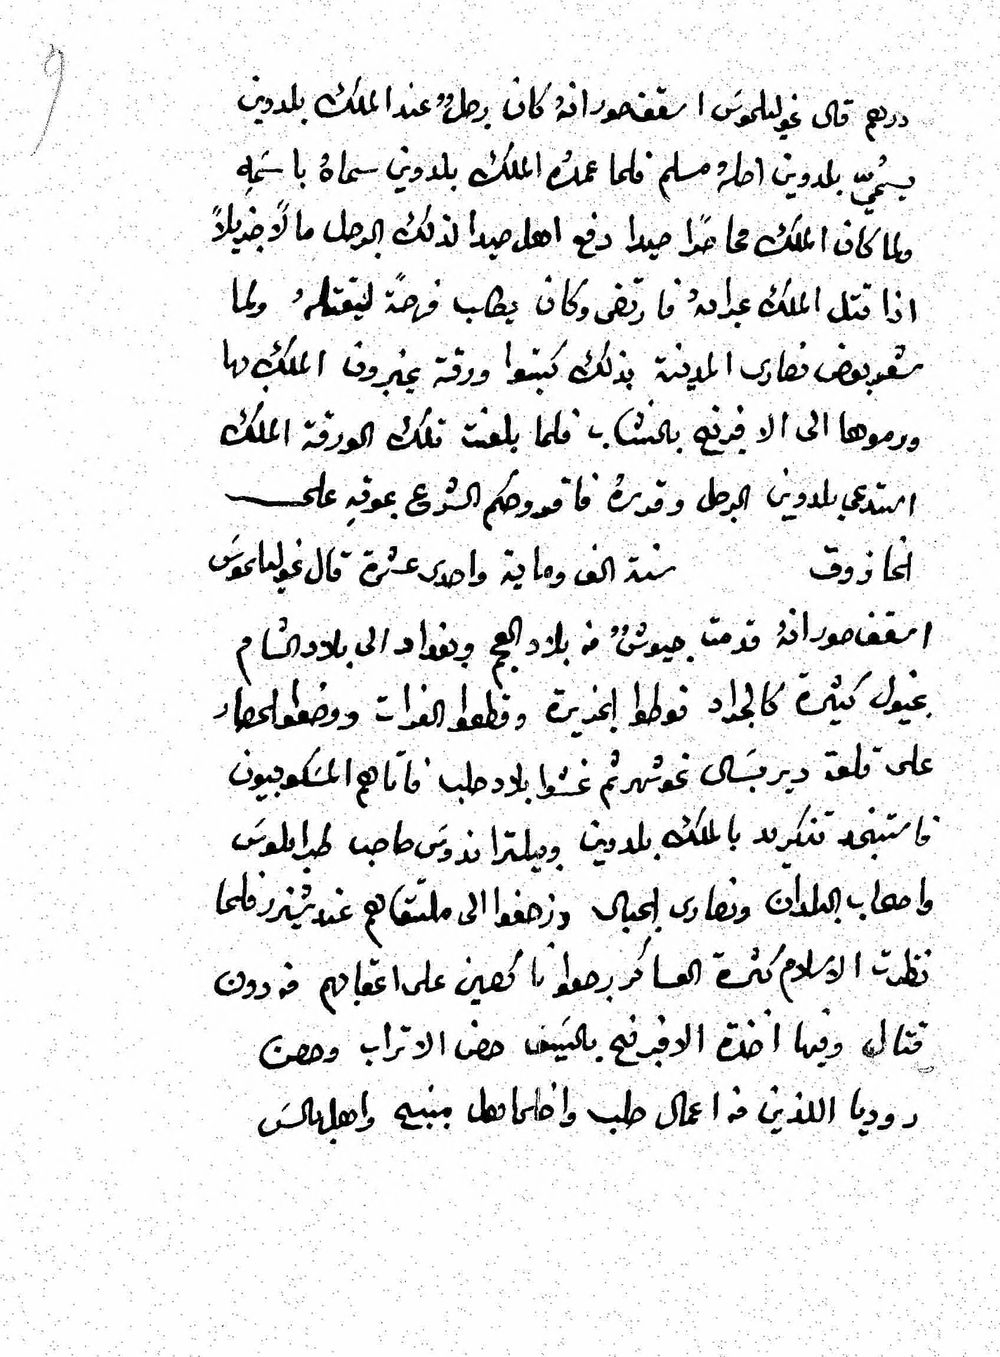 ٩
درهم قال غوليلموس اسقف صور انهُ كان رجلٌ عند الملك بلدوين
يسُميّ بلدوين اصلهُ مسلم فلما عمدهُ الملك بلدوين سماهُ باسَمِه
ولما كان الملك محاصرًا صيدا دفع اهل صيدا لذلك الرجل مالًا جزيلاً
اذا قتل الملك عبرانهُ فارتضى وكان يطلب فرصًة ليقتلهُ ولما
شعر بعض نصارى المدينة بذلك كتبوا ورقة يخبرون الملك بها
ورموها الى الافرنج بالنشاب فلما بلغت تلك الورقة الملك
استدعي بلدوين الرجل وقررهُ فاقر وحكم الشرع بموتهِ على
الخازوق سنة الف وماية واحدى عشرة قال غوليلموسَ
اسقف صور انهُ قدمت جيوشٌ من بلاد العجم وبغداد الى بلاد الشام
بخيول كثيرة كالجراد فوطوا الجزيرة وقطعوا الفرات ووضعوا الحصار
على قلعة ديربسَال نحو شهر ثم غشوا بلاد حلب فاتاهم المسَكوبيون
فاستنجد تنكريد بالملك بلدوين وبيلتراندوسَ صاحب طرابلوسَ
واصحاب البلدان ونصارى الجبال وزحفوا الى ملتقاهم عند شيزر فلما
نظرت الاسلام كثرة العساكر رجعوا ناكصين على اعقابهم من دون
قتال وفيها اخذة الافرنج بالسَيف حصن الاتراب وحصن
روديا اللذين من اعمال حلب واخلما اهل منبج واهل بالسَ